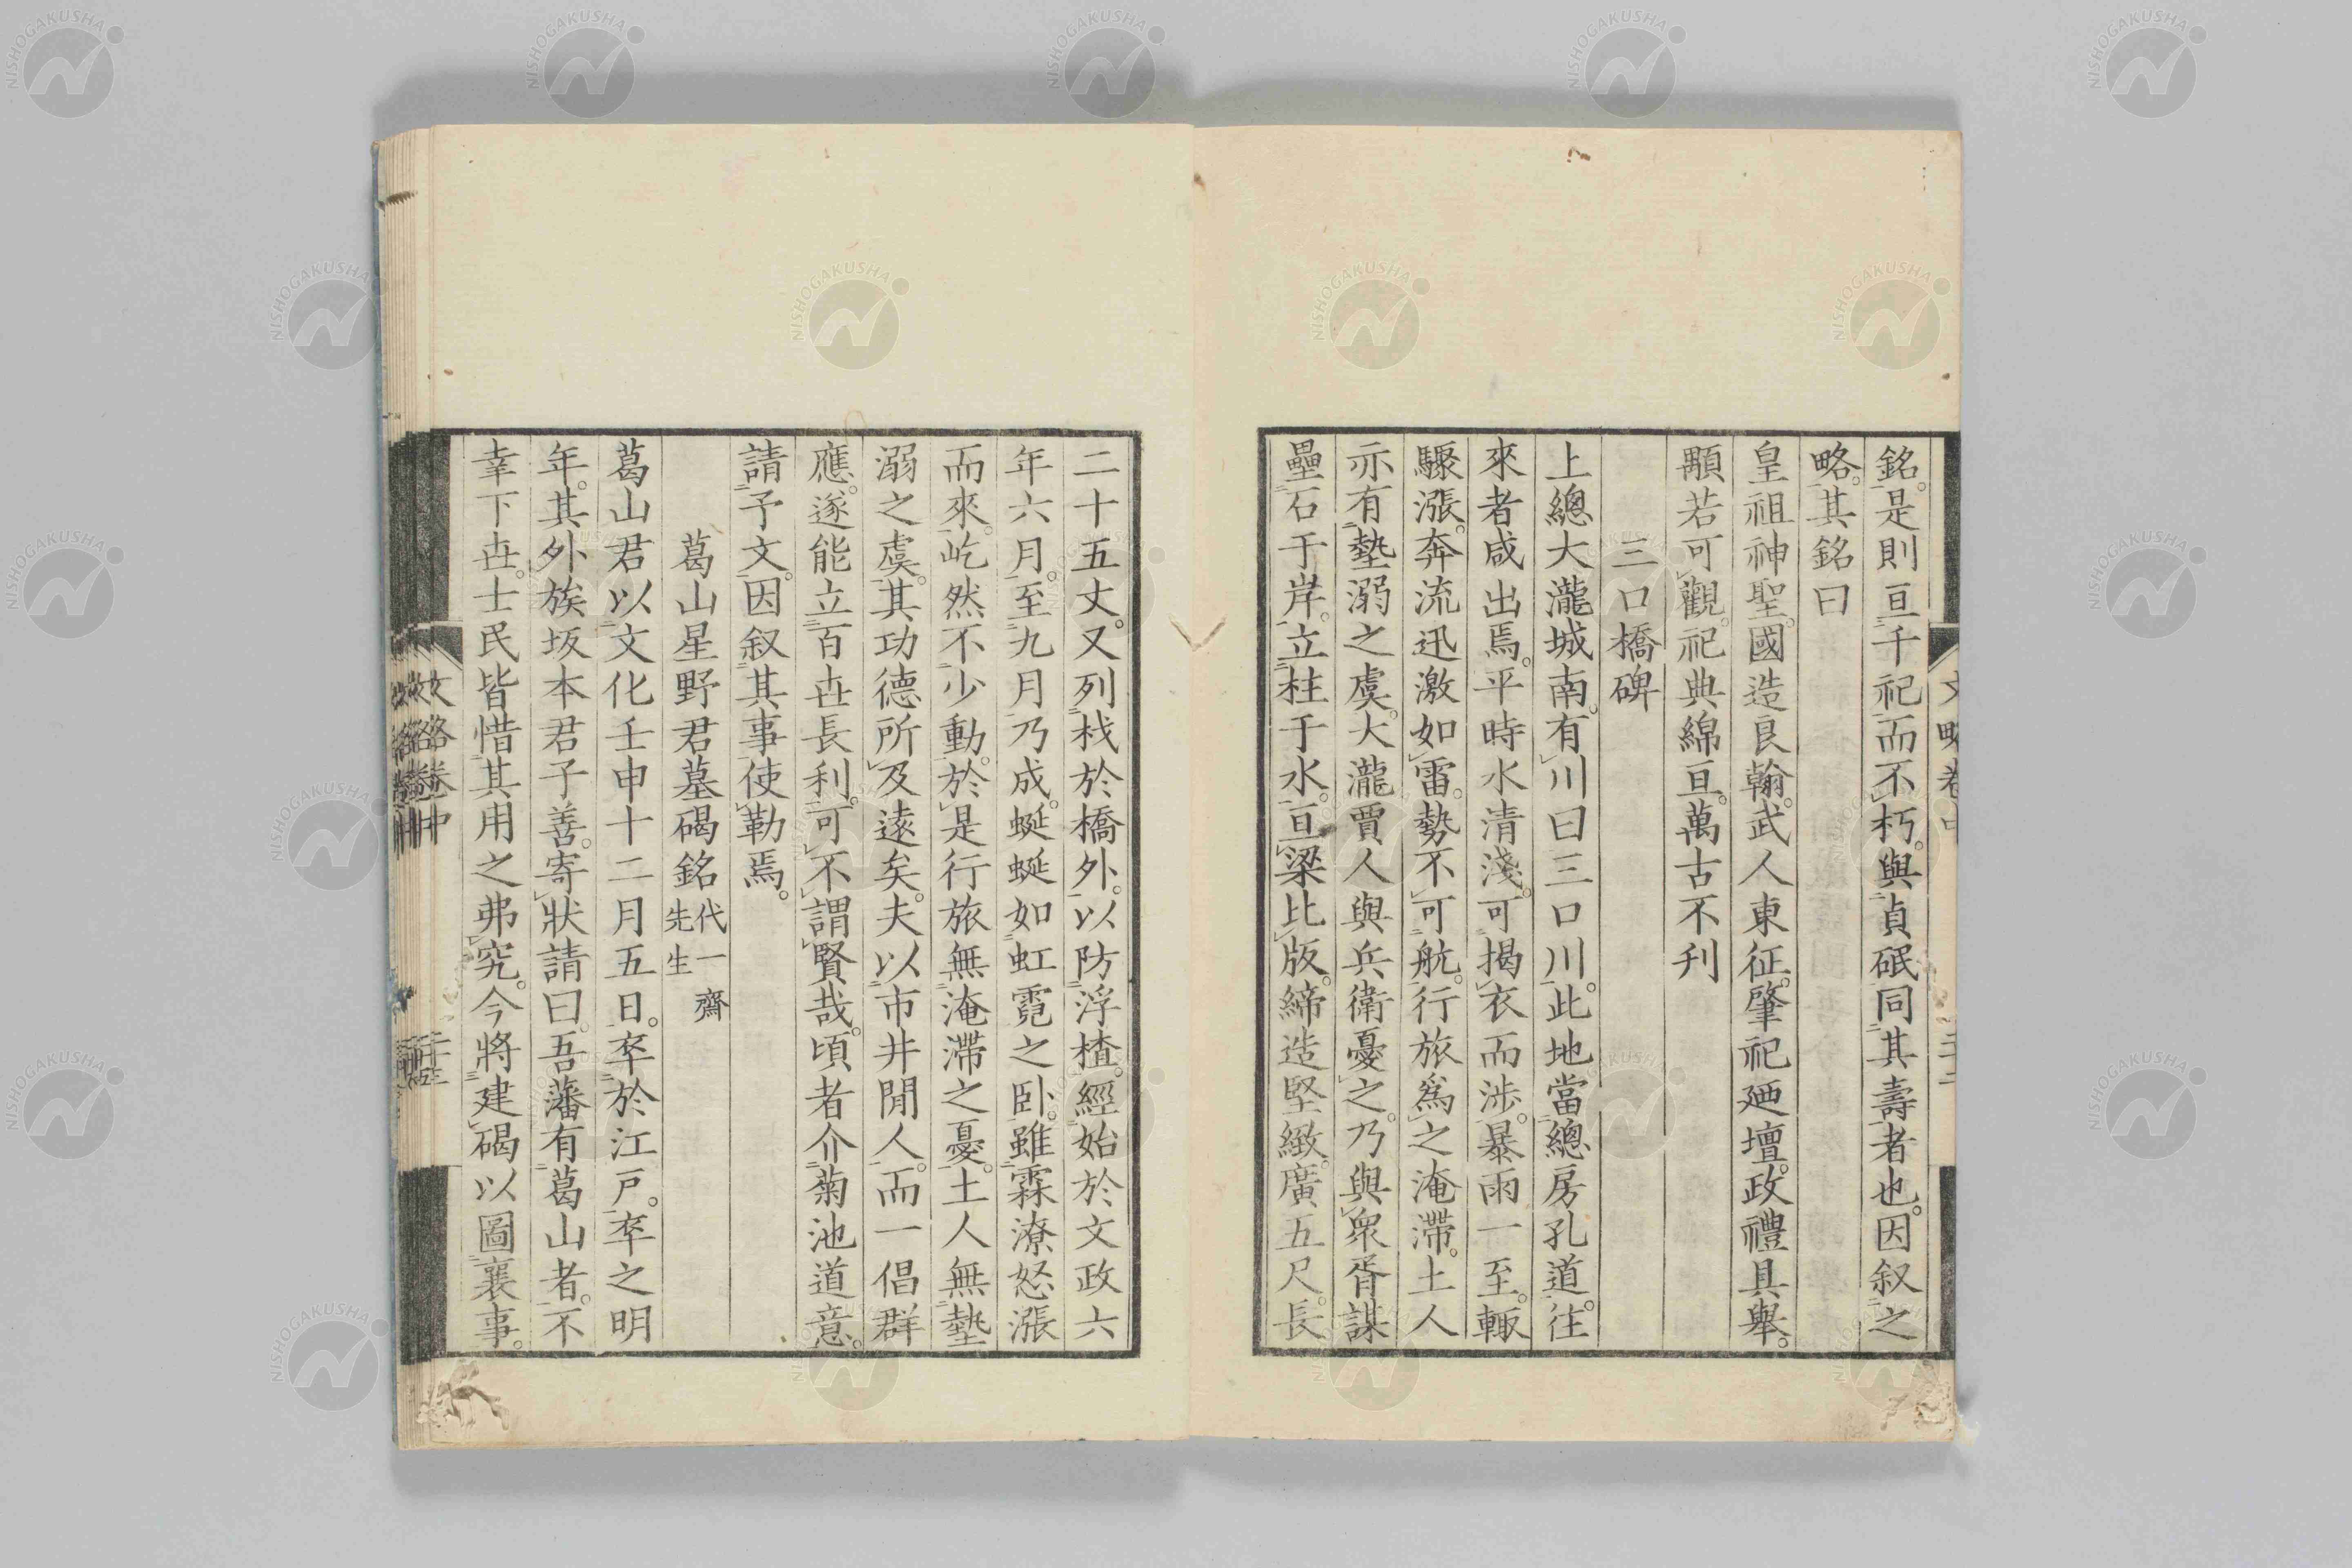 銘。是則亘千祀而不朽。與貞砥同其壽者也。因叙之
略。其銘曰
皇祖神聖。國造良翰。武人東征。肇祀廼壇。政禮具舉。
顒若可觀。祀典綿亘。萬古不刋
三口橋碑
上總大瀧城南。有川曰三口川。此地當總房孔道。往
來者咸出焉。平時水清淺。可揭衣而涉。暴雨一至。輙
驟漲。奔流迅激如雷。勢不可航。行旅爲之淹滯。土人
亦有墊溺之虞。大瀧賈人與兵衛憂之。乃與衆胥謀
壘石于岸。立柱于水。亘梁比版。締造堅緻。廣五尺。長
二十五丈。又列栈於橋外。以防浮楂。經始於文政六
年六月。至九月乃成。蜒蜒如虹霓之卧。雖霖潦怒漲
而來。屹然不少動。於是行旅無淹滯之憂。土人無墊
溺之虞。其功德所及遠矣。夫以市井閒人。而一倡群
應。遂能立百世長利。可不謂賢哉。頃者介菊池道意。
請予文。因叙其事使勒焉。
葛山星野君墓碣銘 代一齋先生
葛山君以文化壬申十二月五日。卒於江戸。卒之明
年。其外族坂本君子善。寄狀請曰。吾藩有葛山者。不
幸下世。士民皆惜其用之弗究。今將建碣以圖襄事。
文略卷中
NISHOGAKUSHA